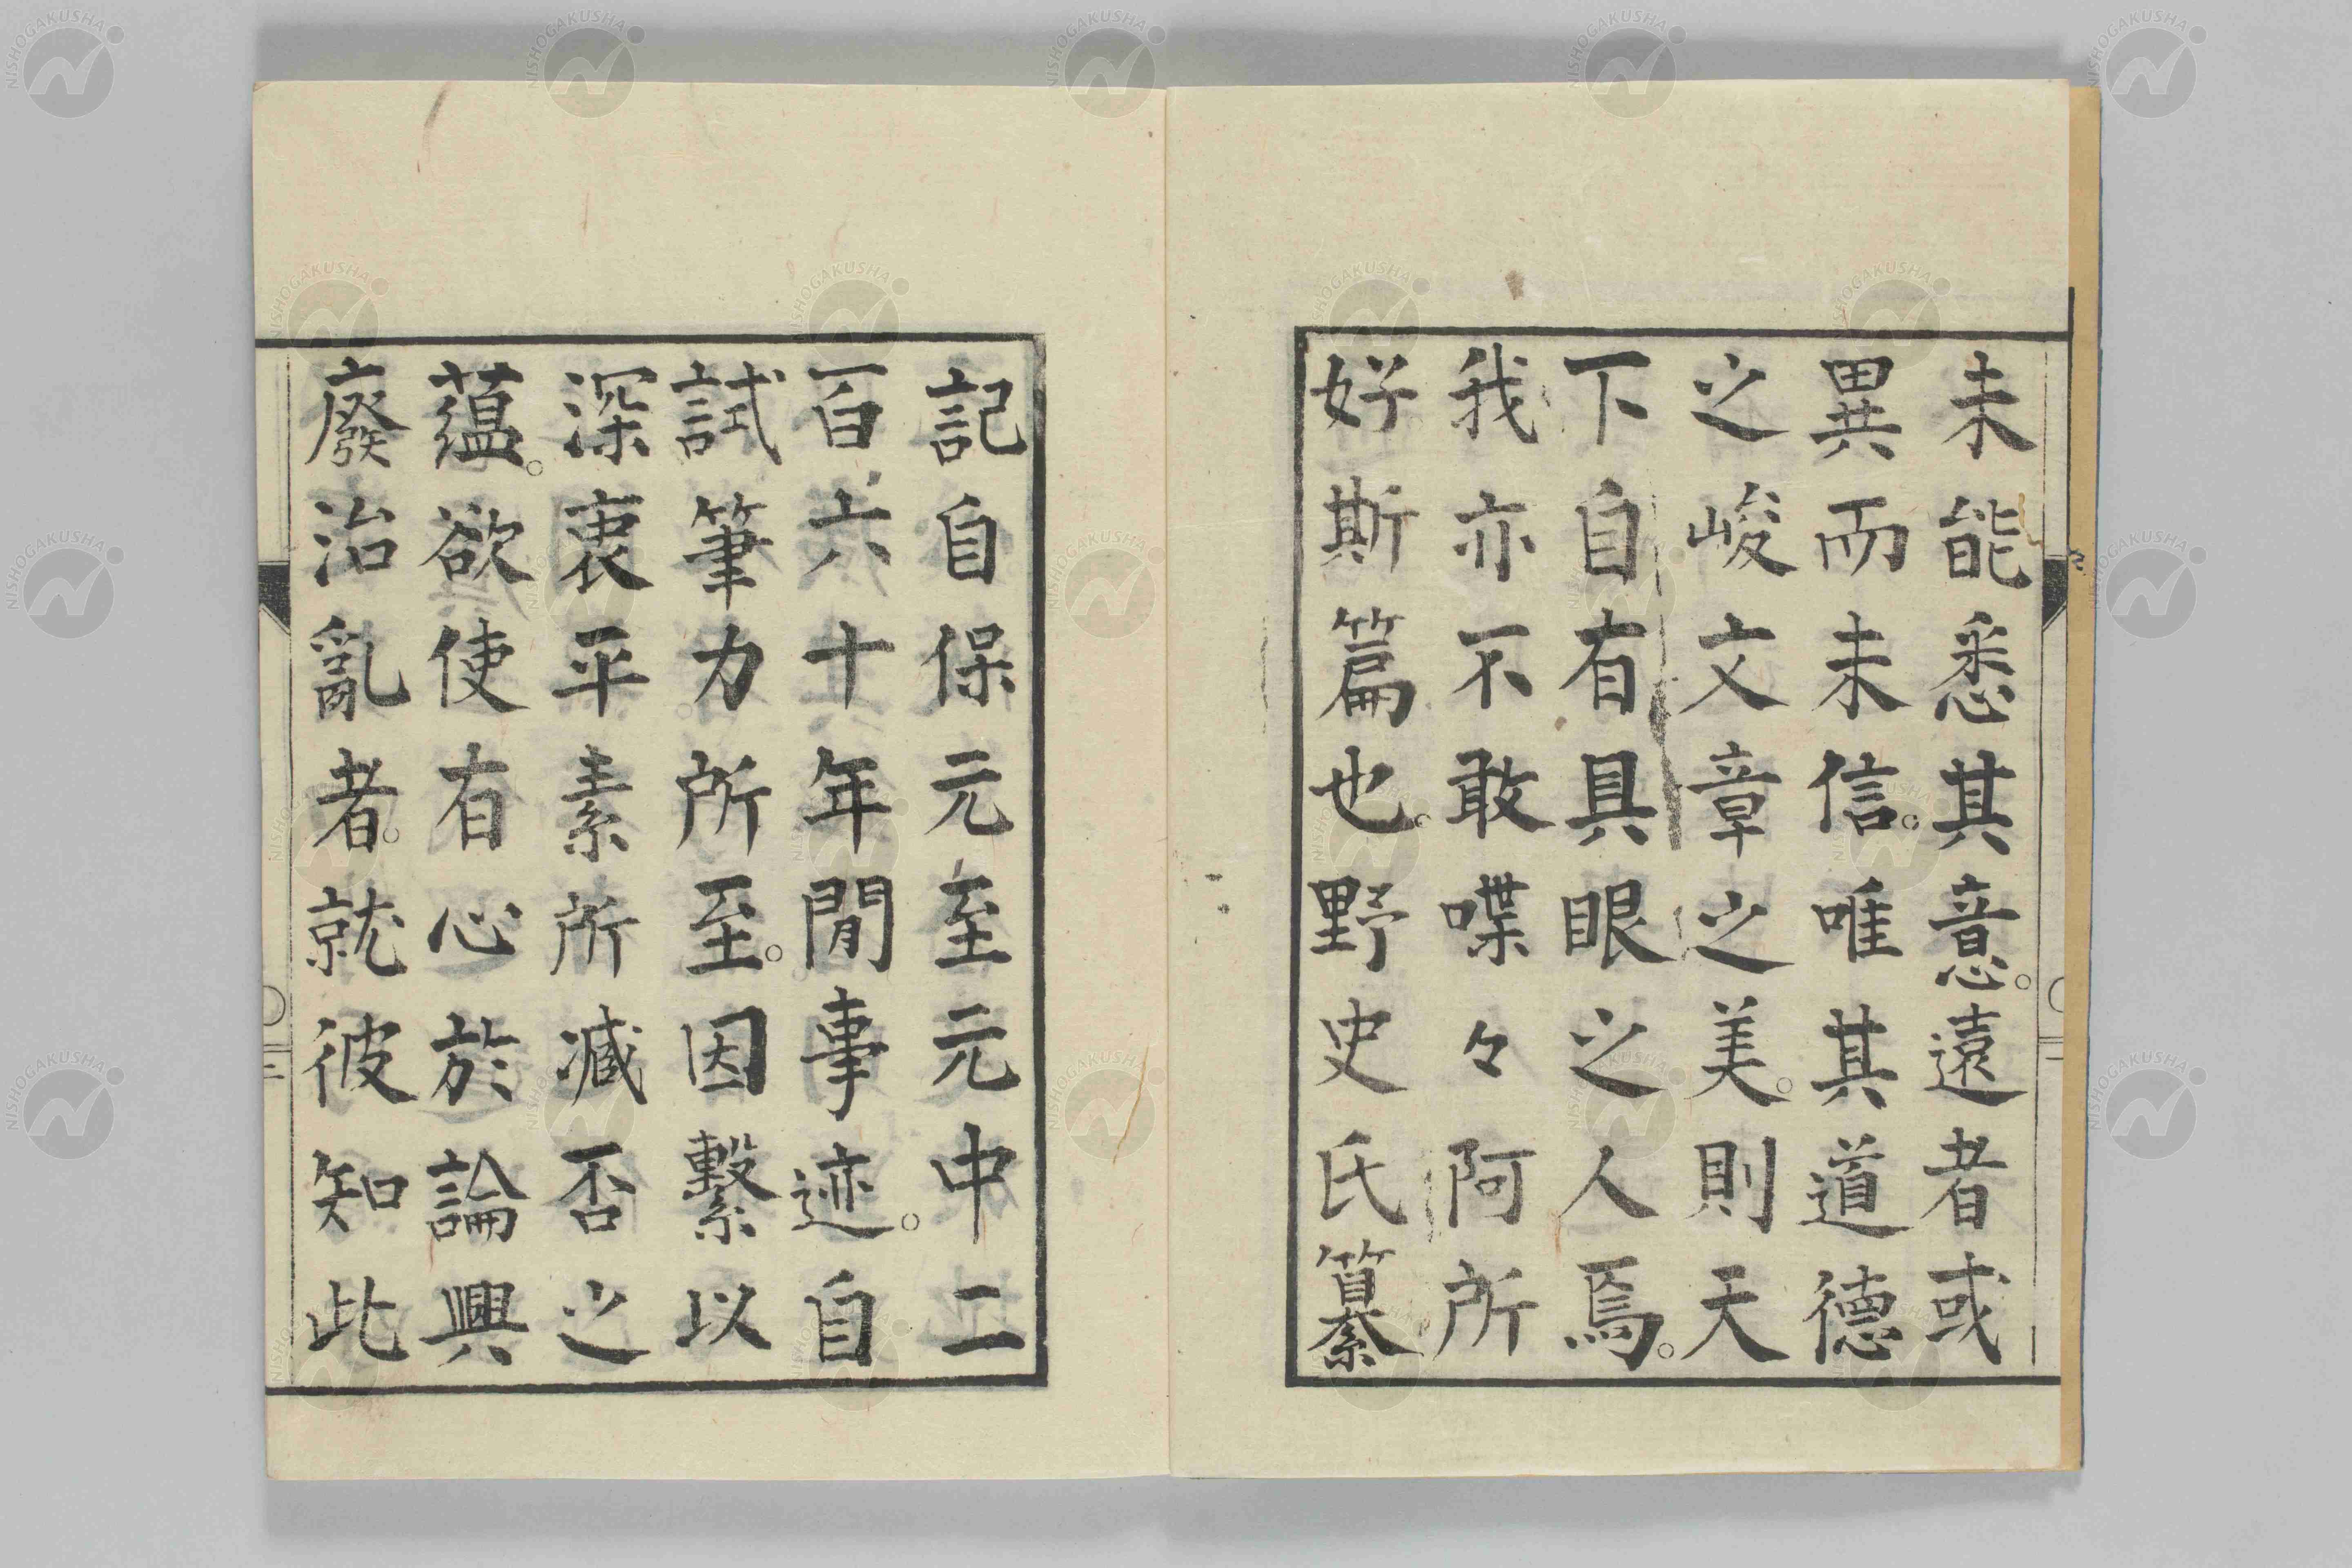 未能悉其意。遠者或
異而未信。唯其道德
之峻文章之美。則天
下自有具眼之人焉。
我亦不敢喋々阿所
好斯篇也。野史氏纂
記自保元至元中二
百六十年閒事迹。自
試筆力所至。因繫以
深衷平素所臧否之
蘊。欲使有心於論興
廢治亂者。就彼知此
三
NISHOGAKUSHA